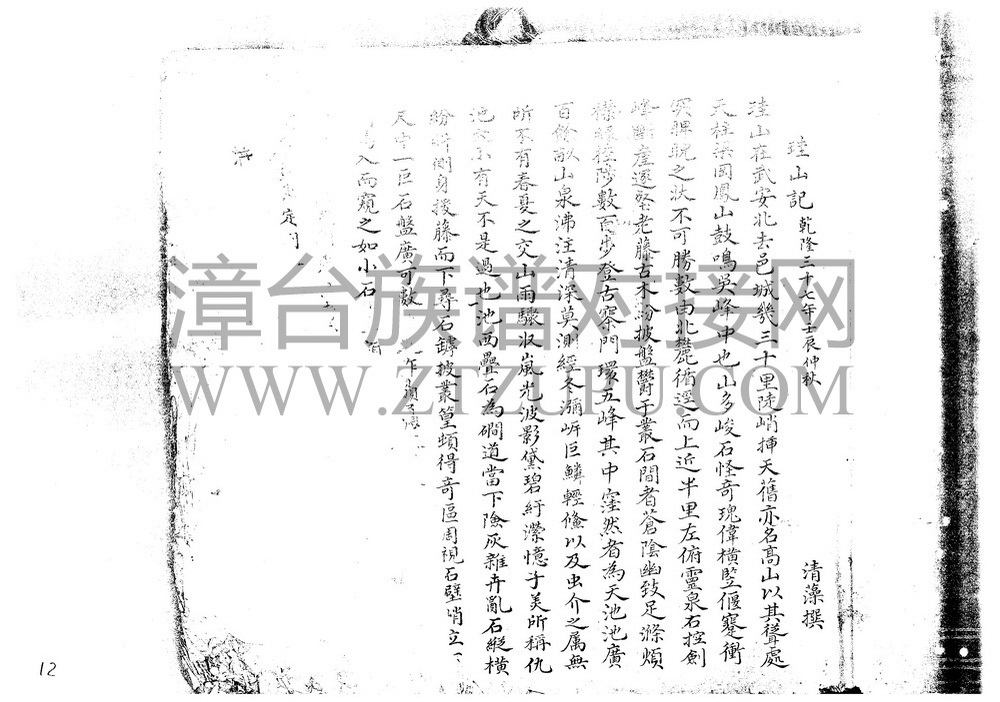 珪山記 乾隆三十七年壬辰仲秋 清藻撰
珪山在武安北去邑城幾三十里陡峭揷天舊亦名高山以其聳處
天柱梁岡鳳山鼓鳴吳峰中也山多峻石怪奇瑰偉橫竪偃蹇衝
突睥睨之狀不可勝數由北麓循逕而上近半里左俯靈泉右控劍
峰斷崖邃壑老藤古木紛披盤欝于叢石間者蒼陰幽致足滌煩
襟緣磴陟數百步登古寨門環五峰其中窪然者為天池池廣
百餘畝山泉沸注清深莫測經冬瀰㟁巨鱗輕鯈以及虫介之属無
所不有春夏之交山雨驟收嵐光波影黛碧紆瀠憶子美所稱仇
池 小有天不是過也池西疊石為磵道當下險仄雜卉亂石縱橫
紛 側身援藤而下尋石罅披叢篁頓得奇區周視石壁峭立
尺中一巨石盤廣可数
入而窺之如小石
定
漳台族谱对接网
WWW.ZTZUPU.COM
12